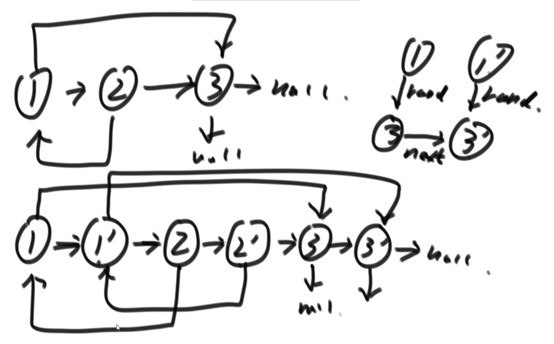 1 → 2 → 3 → null.
null
1 1'
rand rand.
3 next 3'
1 → 1' → 2 → 2' → 3 → 3' → null.
null.